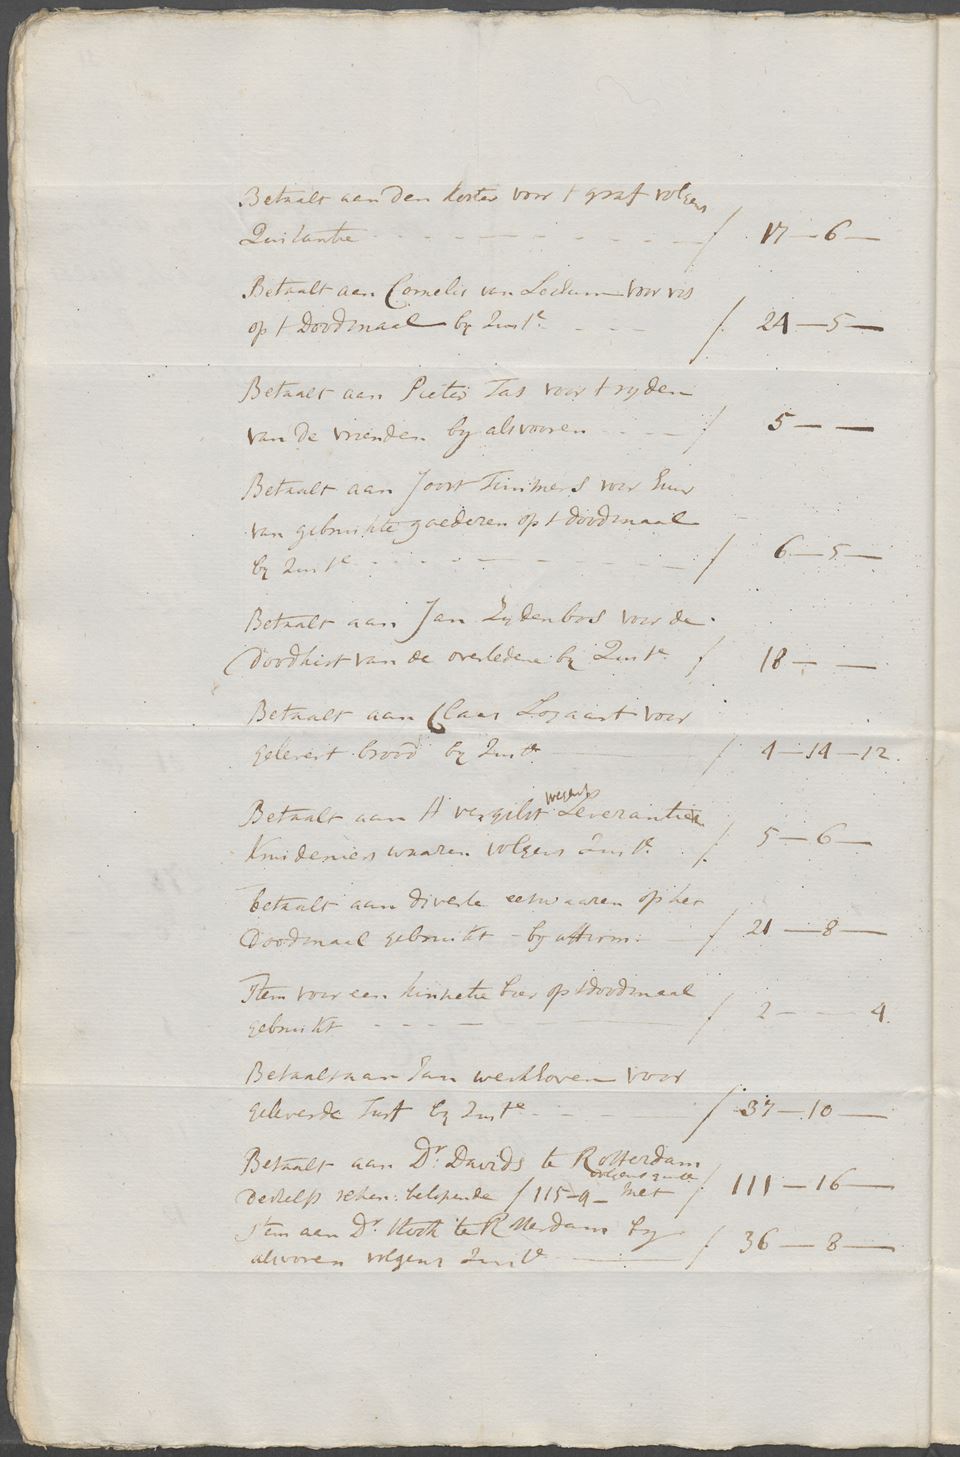 Betaalt aan den koster voor t graf volgens
Quitantie - - - - - - - - - ƒ 17 — 6 —
Betaalt aan Cornelis van Lockum voor vis
op t Doodmaal by Quite - - - ƒ 24 — 5 —
Betaalt aan Pieter Tas voor t ryden
van de vrienden by alsvooren - - - ƒ 5 — —
Betaalt aan Joost Timmers voor huur
van gebruikte goederen op t doodmaal
by Quite - - - - - - - - ƒ 6 — 5 —
Betaalt aan Jan Zydenbos voor de
Doodkist van de overledene by Quite ƒ 18 — —
Betaalt aan Claas voor
gelevert brood by Quite — ƒ 4 — 14 — 12.
wegens
Betaalt aan A vergilst Leverantie
Kruideniers waaren volgens Quite ƒ 5 — 6 —
betaalt aan diverse eetwaaren op het
Doodmaal gebruikt - by affirm: — ƒ 21 — 8 —
Item voor een kinnetie bier op t doodmaal
gebruikt - - - - — ƒ 2 - — 4.
Betaalt aan Jan werkhoven voor
geleverde Turf by Quite - - - ƒ 37 — 10 —
Betaalt aan Dr. Davids te Rotterdam
volgens quite
deszelfs reken: belopende ƒ 115-9- met ƒ 111 — 16 —
Item aan Dr. te Rotterdam by
alsvoren volgens Quite — ƒ 36 — 8 —